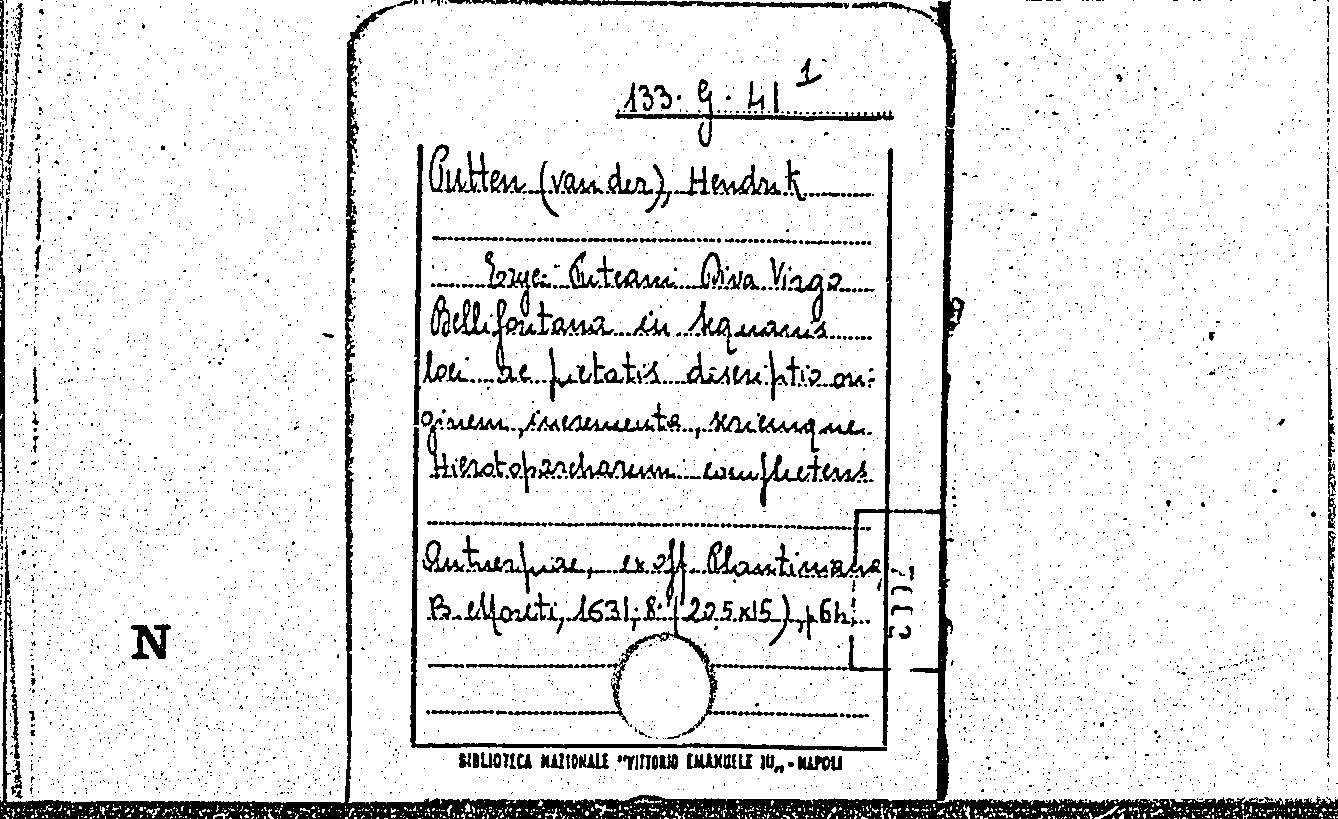 133. G. 41 1
Putten (van der), Hendrik
Eryci Puteani Diva Virgo
Bellifontana in Sequanis
loci ac pietatis descriptio ori=
ginem, incrementa, seriemque
Hierotoparcharum complectens
Antuerpiae, ex off. Plantiniana,
B. Moreti, 1631; 8° (20.5x15), p. 6h.
N
BIBLIOTECA NAZIONALE "VITTORIO EMANUELE III" - NAPOLI